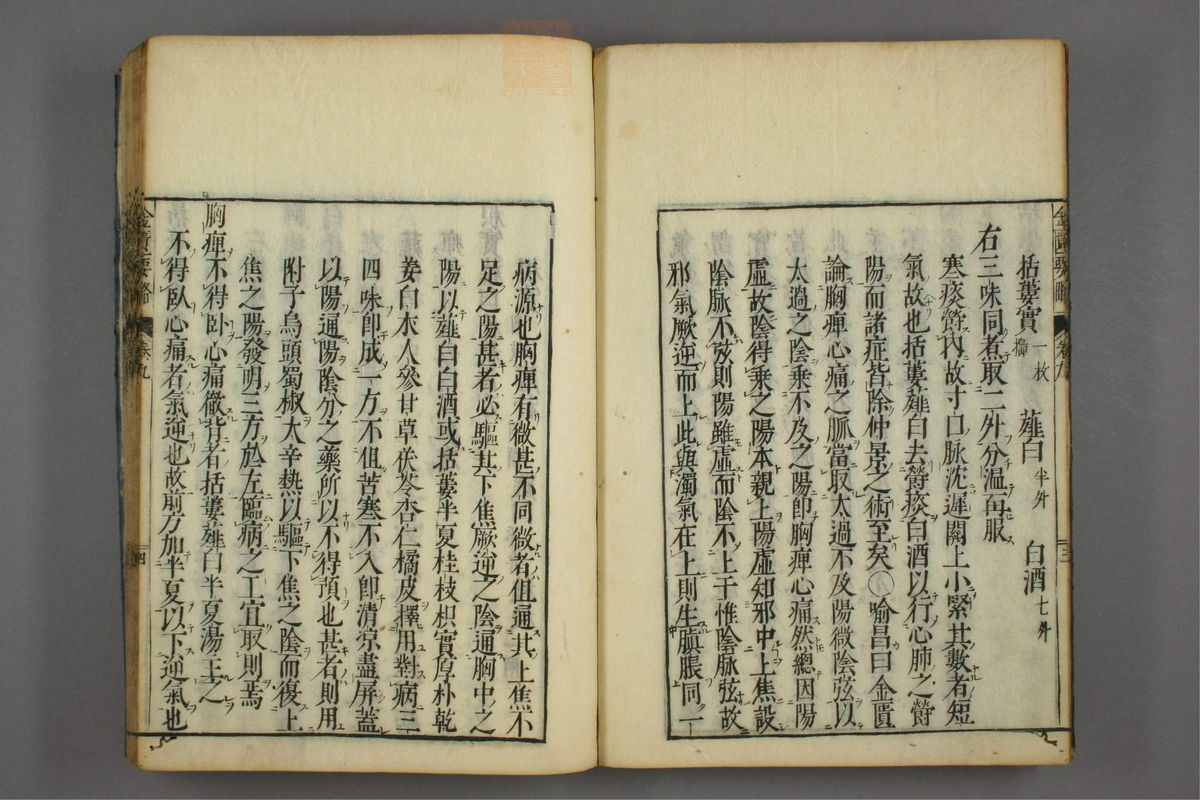 括蔞實一枚擣 薤白半升 白酒七升
右三味同煮取二升分溫再服
寒痰欝內故寸口脉沈遲關上小緊其數者短
氣故也括蔞薤白去欝痰白酒以行心肺之欝
陽而諸症皆除仲景之術至矣○喻昌曰金匱
論胸痺心痛之脈當取太過不及陽微陰弦以
太過之陰乘不及之陽卽胸痺心痛然總因陽
虛故陰得乘之陽本親上陽虛知邪中上焦設
陰脉不弦則陽雖虛而陰不上干惟陰脉弦故
邪氣厥逆而上此與濁氣在上則生䐜脹同一
病源也胸痺有微甚不同微者但通其上焦不
足之陽甚者必驅其下焦厥逆之陰通胸中之
陽以薤白白酒或括蔞半夏桂枝枳實厚朴乾
姜白朮人參甘草茯苓杏仁橘皮擇用對病三
四味卽成一方不但苦寒不入卽清凉盡屏蓋
以陽通陽陰分之藥所以不得預也甚者則用
附子烏頭蜀椒大辛熱以驅下焦之陰而復上
焦之陽發明三方於左臨病之工宜取則焉
胸痺不得臥心痛徹背者括蔞薤白半夏湯主之
不得臥心痛者氣逆也故前方加半夏以下逆氣也
金匱要略 卷九 三
金匱要略 卷九 四